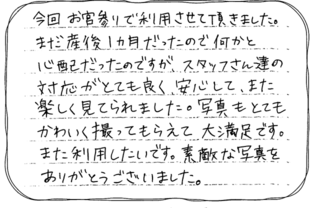 今回お宮参りで利用させて頂きました。
まだ産後1ヵ月だったので何かと
心配だったのですが、スタッフさん達の
対応がとても良く、安心して、また
楽しく見てられました。写真もとても
かわいく撮ってもらえて大満足です。
また利用したいです。素敵な写真を
ありがとうございました。